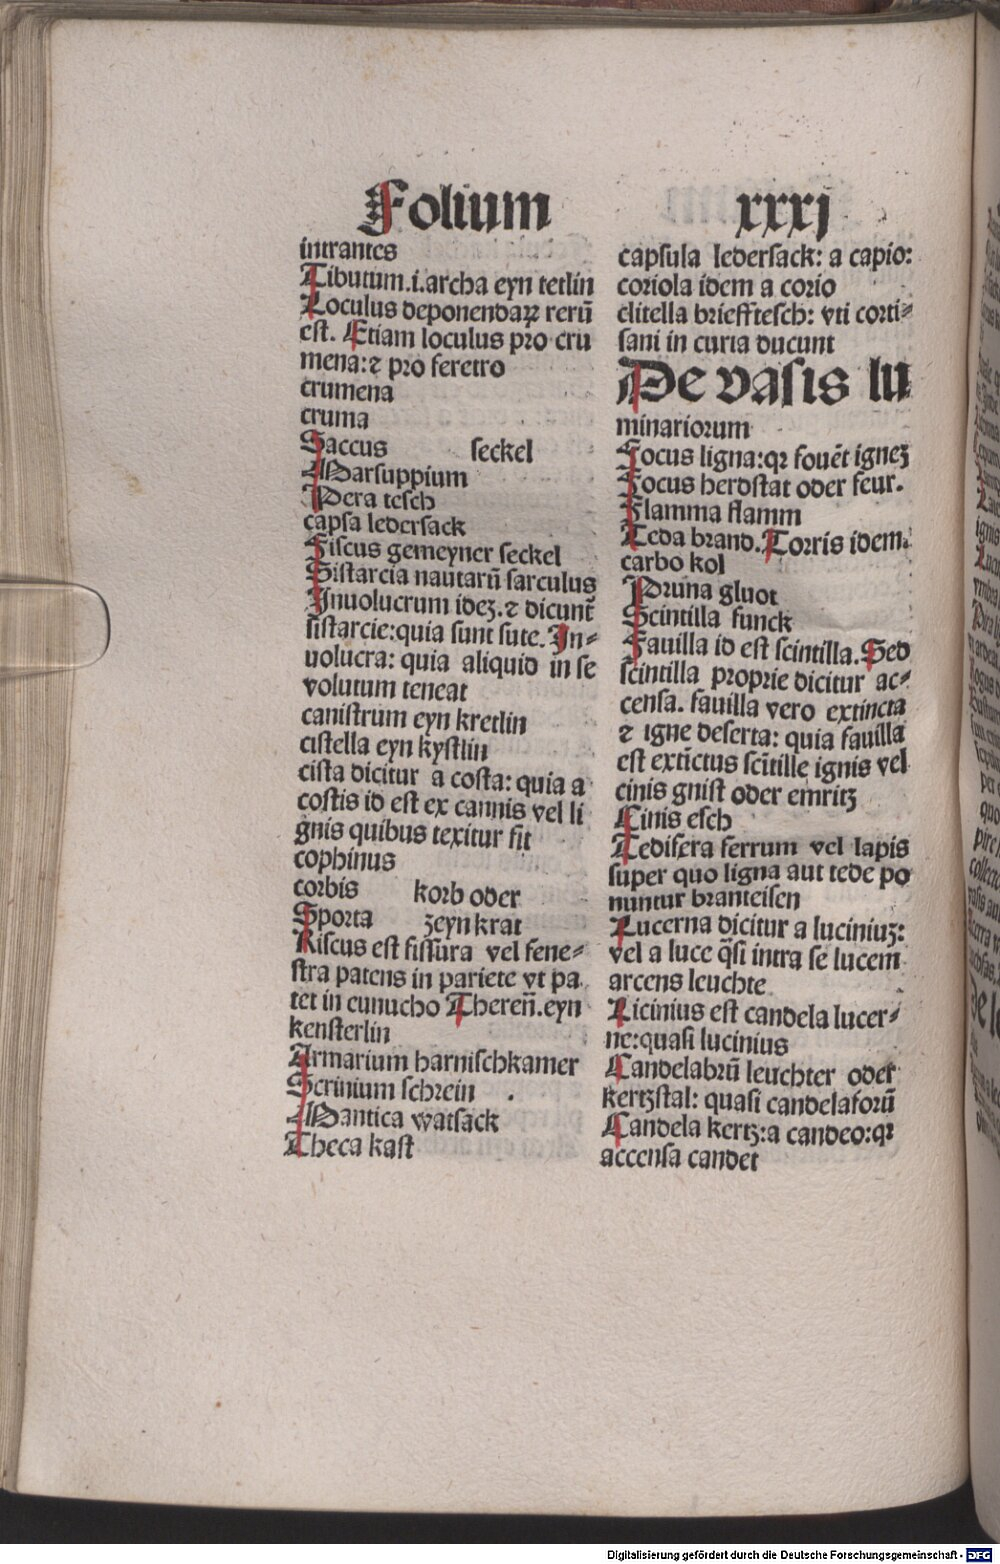 Folium xxxj
intrantes
Tibutum.i.archa eyn tetlin
Loculus deponendaꝝ rerū
est. Etiam loculus pro cru
mena:⁊ pro feretro
crumena
cruma
Saccus seckel
Marsuppium
Pera tesch
capsa ledersack
Fiscus gemeyner seckel
Sistarcia nautarū sarculus
Inuolucrum ideʒ.⁊ dicunt̄
sistarcie:quia sunt sute. In⸗
uolucra: quia aliquid in se
volutum teneat
canistrum eyn kretlin
cistella eyn kystlin
cista dicitur a costa: quia a
costis id est ex cannis vel li
gnis quibus texitur fit
cophinus
corbis korb oder
Sporta zeyn krat
Riscus est fissura vel fene⸗
stra patens in pariete vt pa
tet in eunucho Theren̄.eyn
kensterlin
Armarium harnischkamer
Scrinium schrein
Mantica watsack
Theca kast
capsula ledersack: a capio:
coriola idem a corio
clitella briefftesch: vti corti⸗
sani in curia ducunt
De vasis lu
minariorum
Focus ligna:qꝛ fouēt igneʒ
Focus herdstat oder feur.
Flamma flamm
Teda brand. Torris idem.
carbo kol
Pruna gluot
Scintilla funck
Fauilla id est scintilla. Sed
scintilla proprie dicitur ac⸗
censa. fauilla vero extincta
⁊ igne deserta: quia fauilla
est extīctus scītille ignis vel
cinis gnist oder emritz
Cinis esch
Tedifera ferrum vel lapis
super quo ligna aut tede po
nuntur branteisen
Lucerna dicitur a luciniuʒ:
vel a luce q̄si intra se lucem
arcens leuchte
Licinius est candela lucer⸗
ne:quasi lucinius
Candelabrū leuchter oder
kertzstal: quasi candelaforū
Candela kertz:a candeo:qꝛ
accensa candet
Digitalisierung gefördert durch die Deutsche Forschungsgemeinschaft - DFG